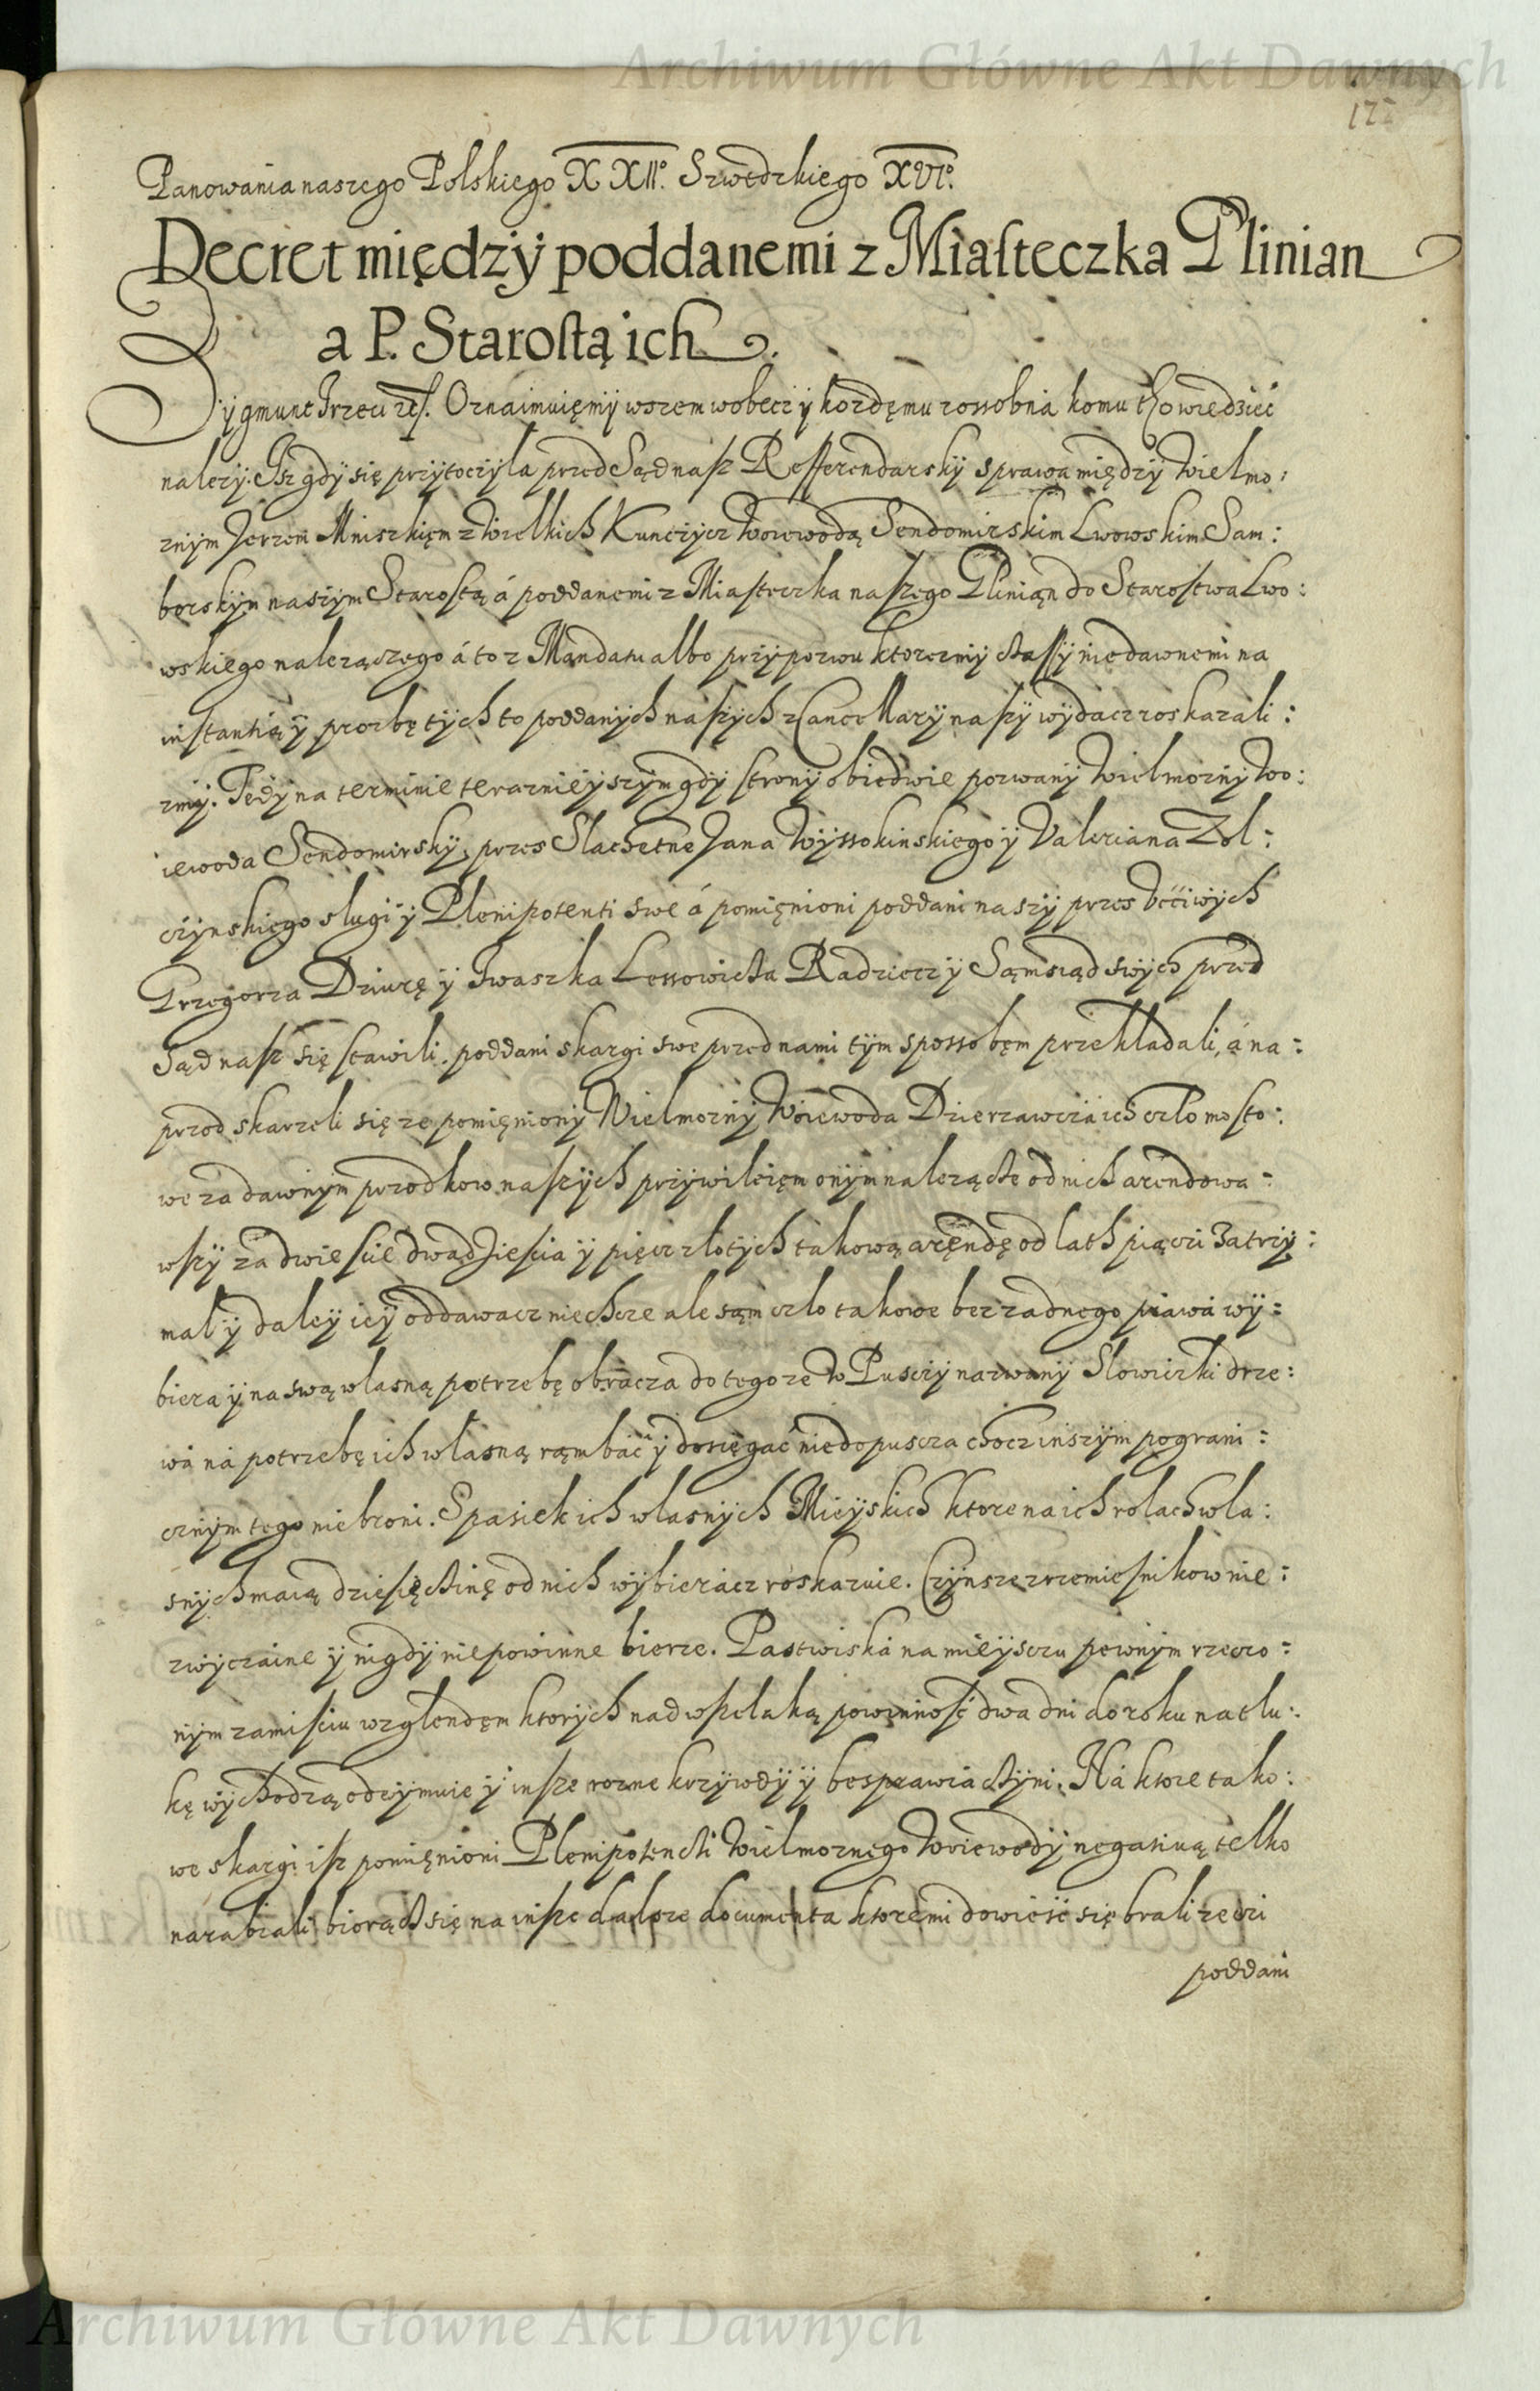 Archiwum Główne Akt Dawnych
Panowania naszego Polskiego XXII°. Szwedzkiego XVI°.
Decret między poddanemi z Miasteczka Glinian
a P. Starostą ich
Zygmunt Trzeci etc. Oznaimuięmy wszem wobecz y kożdęmu zossobna komu tho wiedzieć
nalezy. Isz gdy się przytoczyla przed Sąd nasz Refferendarsky sprawa między Wielmo:
znym Jerzem Mniszkięm z Wielkich Kunczycz Woiewodą Sendomirskim Lwowskim Sam:
borskym naszym Starostą á poddanemi z Miasteczka naszego Glinian do Starostwa Lwo:
wskiego nalezączego á to z Mandatu albo przypozwu ktorezmy czassy niedawnemi na
instantią y prozbę tych to poddanych naszych z Cancellaryi naszy wydacz roskazali:
zmy. Tedy na terminie teraznieyszym gdy strony obiedwie pozwany Wielmozny Wo:
iewoda Sendomirsky, przes Slachetne Jana Wyssokinskiego y Valeriana Zol:
czynskiego slugi y Plenipotenti swe á pomięnioni poddani naszy przes Uććiwych
Grzegorza Dziurę y Iwaszka Lessowicza Radziecz y Sąmsiad swych przed
Sąd nasz się stawili, poddani skargi swe przed nami tym spossobęm przekladali, á na:
przod skarzeli się ze pomięniony Wielmozny Woiewoda Dzierzawcza ich czlo mosto:
we za dawnym przodkow naszych przywileięm onym nalezącze od nich arendowa:
wszy za dwiescie dwadziescia y pięcz zlotych takową arędę od lath piączi zatrzy:
mal y daley iey oddawacz niechcze ale sąm czlo takowe bez zadnego prawa wy:
biera y na swą wlasną potrzebę obracza do tego ze w Pusczy nazwany Slowiczki drze:
wá ná potrzebę ich wlasną rąmbać y dosięgać niedopuscza chocz inszym pograni:
cznym tego niebroni. S pasiek ich wlasnych Mieyskich ktore na ich rolach wla:
snych maią dziesięczinę od nich wybieracz roskazuie. Czynsze z rzemiesnikow nie:
zwyczaine y nigdy niepowinne bierze. Pastwiska na mieysczu pewnym rzeczo:
nym zamisciu wzglendęm ktorych nad wszelaką powinność dwa dni do roku na tlu:
kę wychodzą odeymuie y insze rozne krzywdy y besprawia czyni. Ná ktore tako:
we skargi isz pomięnioni Plenipotenczi Wielmoznego Woiewody negatiuą telko
narabiali biorącz się na insze dalsze documenta ktoremi dowieść się brali ze czi
poddani
Archiwum Główne Akt Dawnych